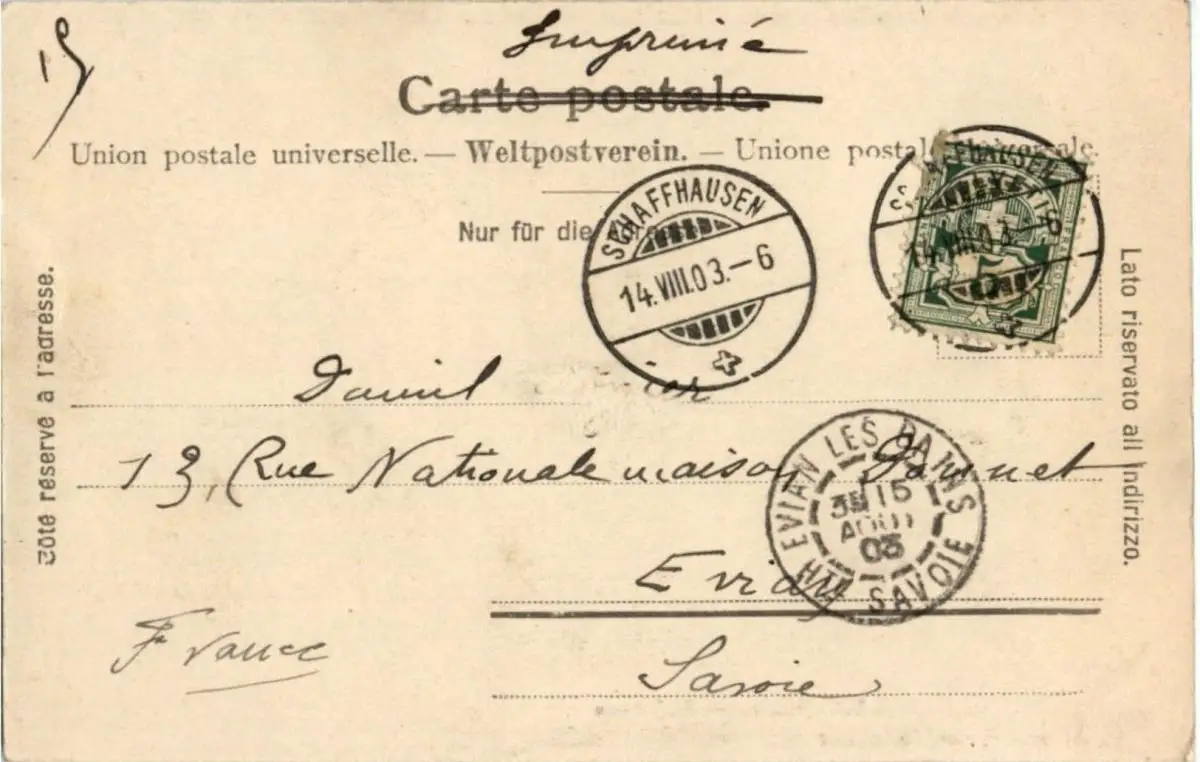 Imprimé
Carte postale.
Union postale universelle. — Weltpostverein. — Unione postale universale.
Nur für die
SCHAFFHAUSEN
14.VIII.03.–6
SCHAFFHAUSEN
14.VIII.03.–6
5
Côté réservé à l'adresse.
Lato riservato all indirizzo.
13, Rue Nationale maison
Evian
Savoie
France
EVIAN LES BAINS
15
AOUT
03
HTE SAVOIE